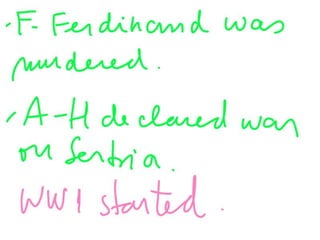 ·F. Ferdinand was
murdered.
·A-H declared war
on Serbia.
WW1 started.